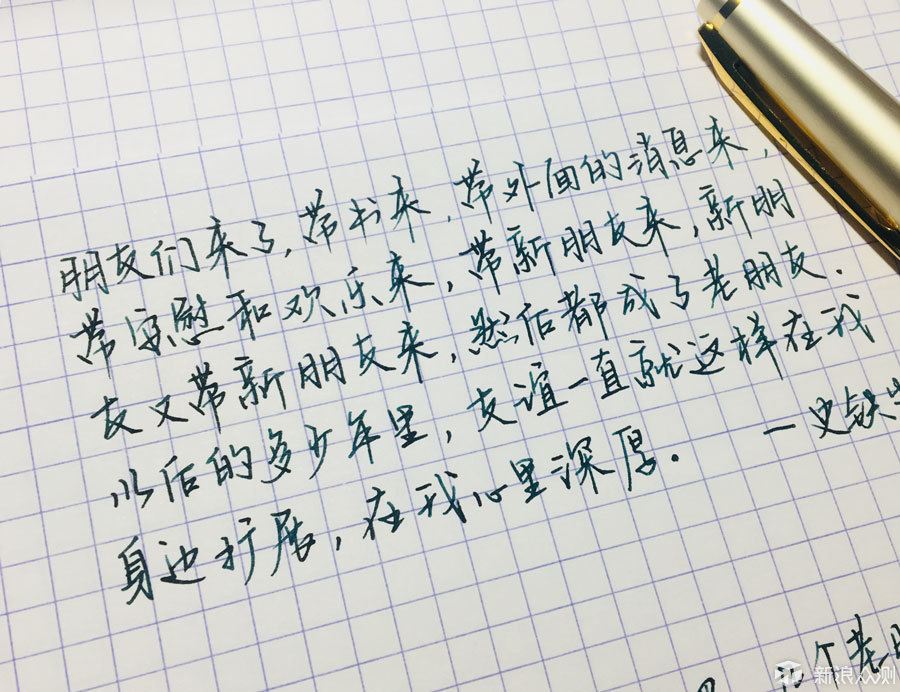 朋友们来了，带书来，带外面的消息来，
带安慰和欢乐来，带新朋友来，新朋
友又带新朋友来，然后都成了老朋友.
以后的多少年里，友谊一直就这样在我
身边扩展，在我心里深厚.
一史铁
个老
新浪众测